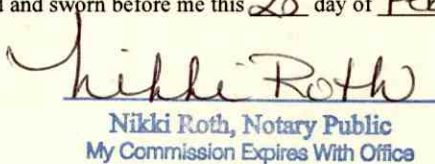 and sworn before me this 20 day of
Nikki Roth
Nikki Roth, Notary Public
My Commission Expires With Office